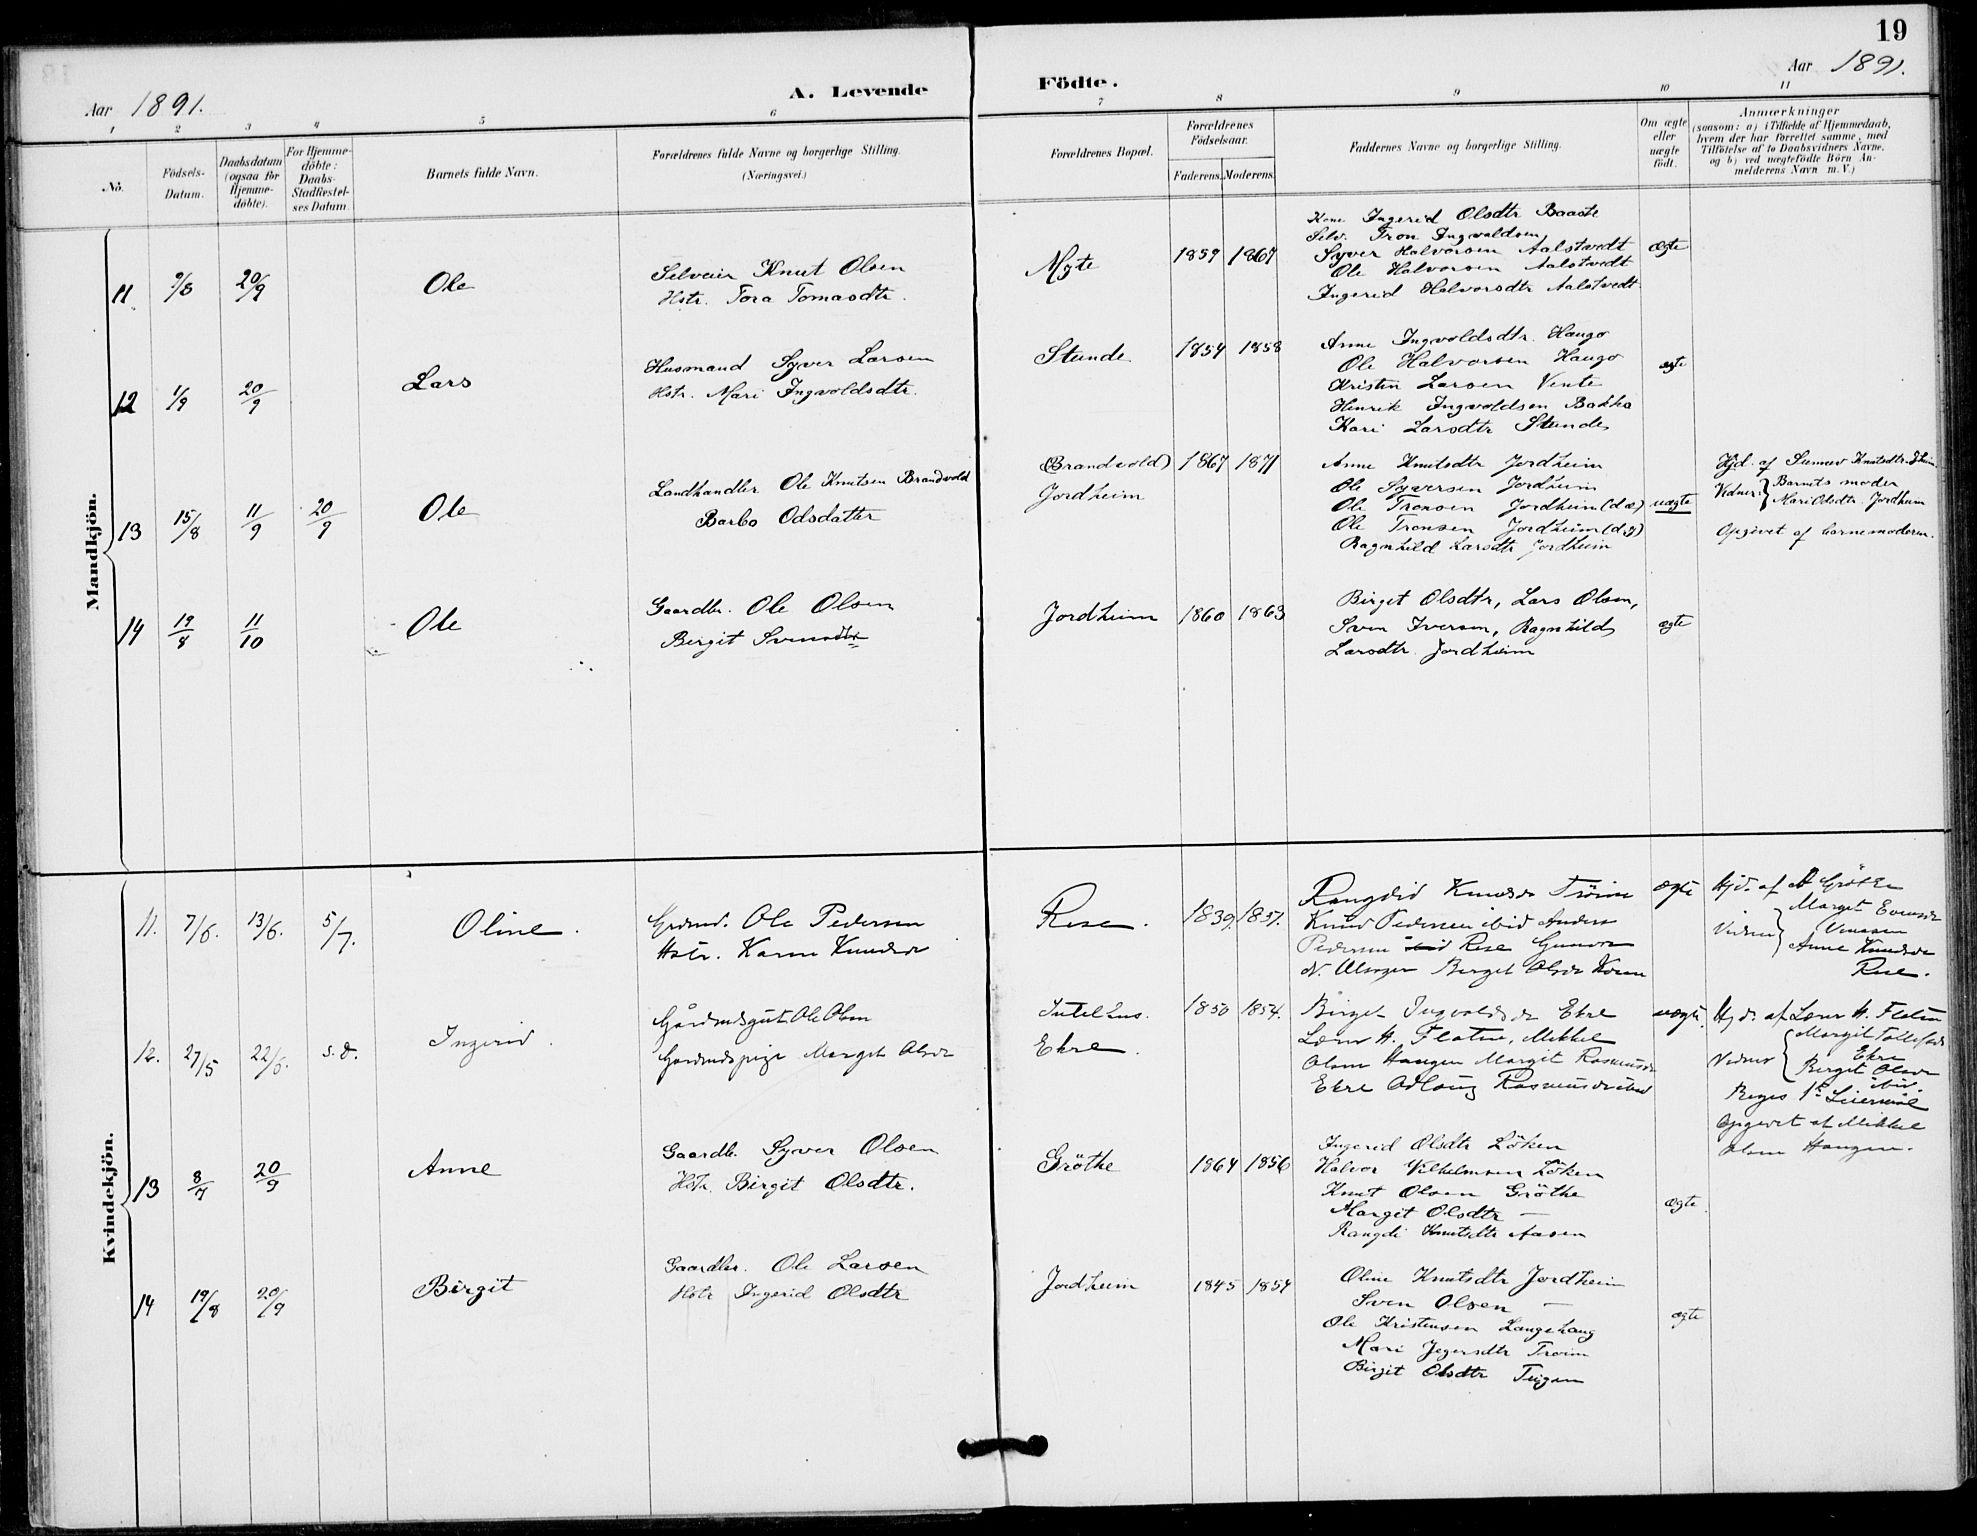 19
Aar 1891.
A. Levende Födte.
Aar 1891.
1 2 3 4 5 6 7 8 9 10 11
No.
Födsels-Datum.
Daabsdatum (ogsaa for Hjemme-döbte).
For Hjemme-döbte: Daabs-Stadfæstel-ses Datum.
Barnets fulde Navn.
Forældrenes fulde Navne og borgerlige Stilling. (Næringsvei.)
Forældrenes Bopæl.
Forældrenes Födselsaar.
Faderens. Moderens.
Faddernes Navne og borgerlige Stilling.
Om ægte eller uægte født.
Anmærkninger
(saasom: a) i Tilfælde af Hjemmedaab,
hvem der har forrettet samme, med
Tilföielse af to Daabsvidners Navne,
og b) ved uægtefödte Börn An-
melderens Navn m. V.)
Mandkjön.
11 9/8 20/9 Ole
Selveier Knut Olsen
Hstr. Tora Tomasdtr.
Myte 1859 1867
Kone Ingerid Olsdtr Baaste
Selv. Tron Ingvaldsen
Syver Halvorsen Aalstvedt
Ole Halvorsen Aalstvedt
Ingerid Halvorsdtr Aalstvedt
ægte
12 1/9 20/9 Lars
Husmand Syver Larsen
Hstr. Mari Ingvoldsdtr.
Stande 1854 1858
Anne Ingvoldsdtr. Haugo
Ole Halvorsen Haugo
Kristen Larsen Vente
Henrik Ingvoldsen Bakka
Kari Larsdtr Stande
ægte
13 15/8 11/9 20/9 Ole
Landhandler Ole Knutsen Brandvold
Barbo Odsdatter
(Brandvold) 1867 1871
Jordheim
Anne Knutsdtr Jordheim
Ole Syversen Jordheim
Ole Tronsen Jordheim (d.æ)
Ole Tronsen Jordheim (d.y)
Ragnhild Larsdtr Jordheim
uægte
Hjd. af Sunnev Knutsdtr.
Vidner: Barnets moder
Mari Olsdtr Jordheim
Opgivet af barnemoderen.
14 19/8 11/10 Ole
Gaardbr. Ole Olsen
Birgit Svensdtr
Jordheim 1860 1863
Birget Olsdtr, Lars Olsen,
Sven Iversen, Ragnhild
Larsdtr. Jordheim
ægte
Kvindekjön.
11. 7/6. 13/6. 5/7. Oline.
Grdmd. Ole Pedersen
Hstr. Karen Knudsdr
Rese. 1839. 1857.
Rangdid Knudsdr Tröim
Knud Pedersen ibid Anders
Pedersen Rese Gunvor
Birget Olsdr
ægte
Hjd. af Gröthe
Vidner Marget Evensdr
Anne Knudsdr
Rese.
12. 27/5 22/6. s.d. Ingerid.
Gårdmdsgut Ole Olsen
Gårdmdspige Marget Olsdr
1850 1854.
Ekre.
Birget Ingvaldsdr Ekre
H. Flaten, Mikkel
Olsen Haugen Margit Rasmusdr
Ekre Rasmusdr ibid
uægte.
Hjd. af H. Flaten
Vidner Margit Tollefsdr
Ekre
Birgit Olsdr
ibid.
Begges 1ste Leiermål
Opgivet af Mikkel
Olsen Haugen.
13 8/7 20/9 Anne
Gaardbr. Syver Olsen
Hstr. Birgit Olsdtr.
Gröthe 1864 1856
Ingerid Olsdtr Löken
Halvor Vilhelmsen Löken
Knut Olsen Gröthe
Margit Olsdtr —
Rangdi Knutsdtr Aasen
ægte
14 19/8 20/9 Birgit
Gaardbr. Ole Larsen
Hstr Ingerid Olsdtr
Jordheim 1845 1854
Oline Knutsdtr Jordheim
Sven Olsen —
Ole Kristensen Langehaug
Mari Troim
Birgit Olsdtr
ægte